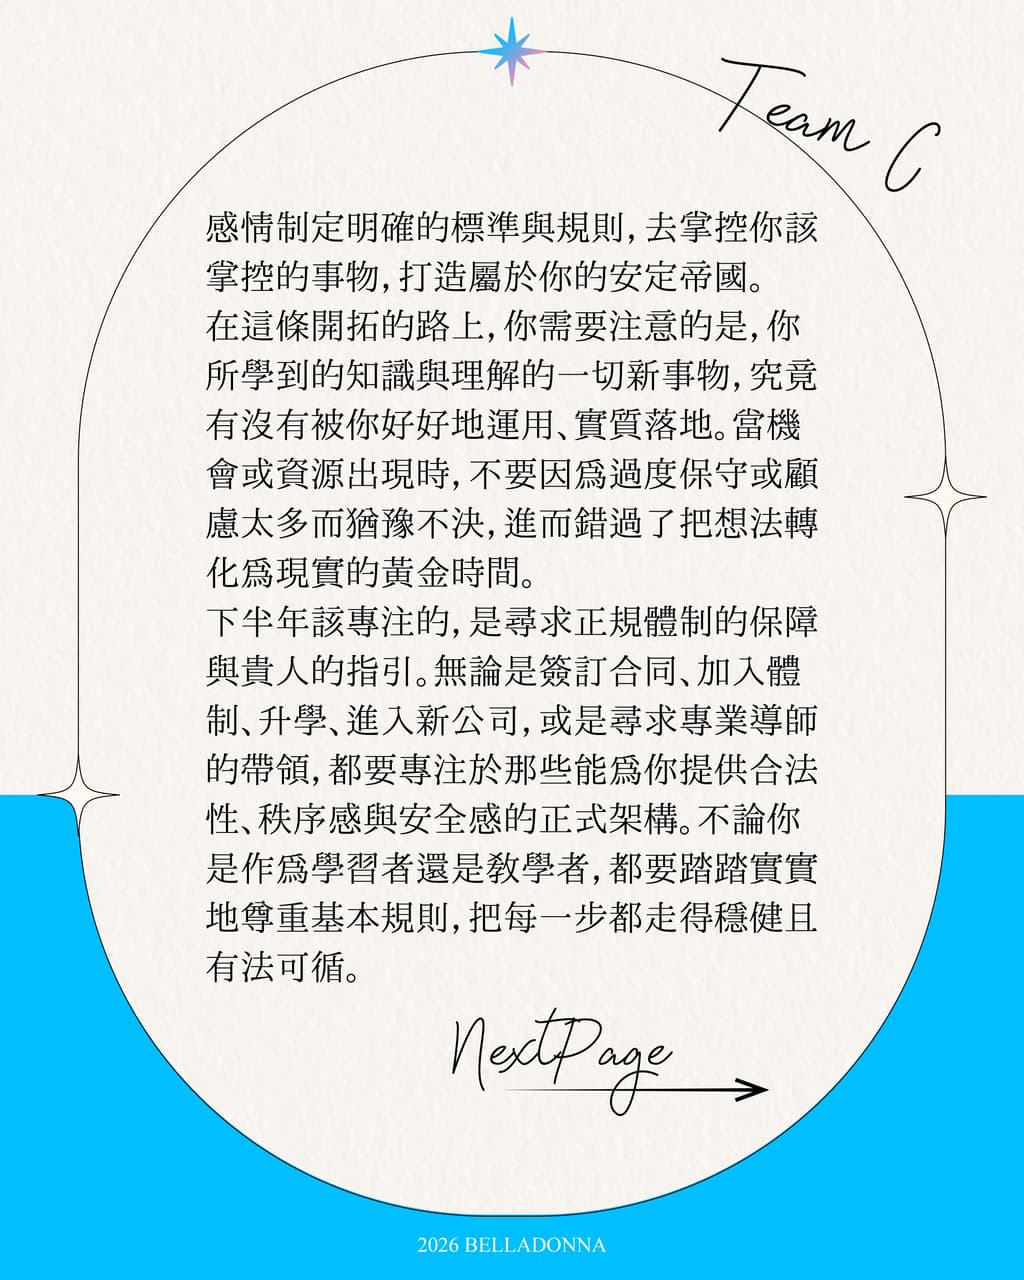 Team C
感情制定明確的標準與規則，去掌控你該
掌控的事物，打造屬於你的安定帝國。
在這條開拓的路上，你需要注意的是，你
所學到的知識與理解的一切新事物，究竟
有沒有被你好好地運用、實質落地。當機
會或資源出現時，不要因為過度保守或顧
慮太多而猶豫不決，進而錯過了把想法轉
化為現實的黃金時間。
下半年該專注的，是尋求正規體制的保障
與貴人的指引。無論是簽訂合同、加入體
制、升學、進入新公司，或是尋求專業導師
的帶領，都要專注於那些能為你提供合法
性、秩序感與安全感的正式架構。不論你
是作為學習者還是教學者，都要踏踏實實
地尊重基本規則，把每一步都走得穩健且
有法可循。
NextPage
2026 BELLADONNA